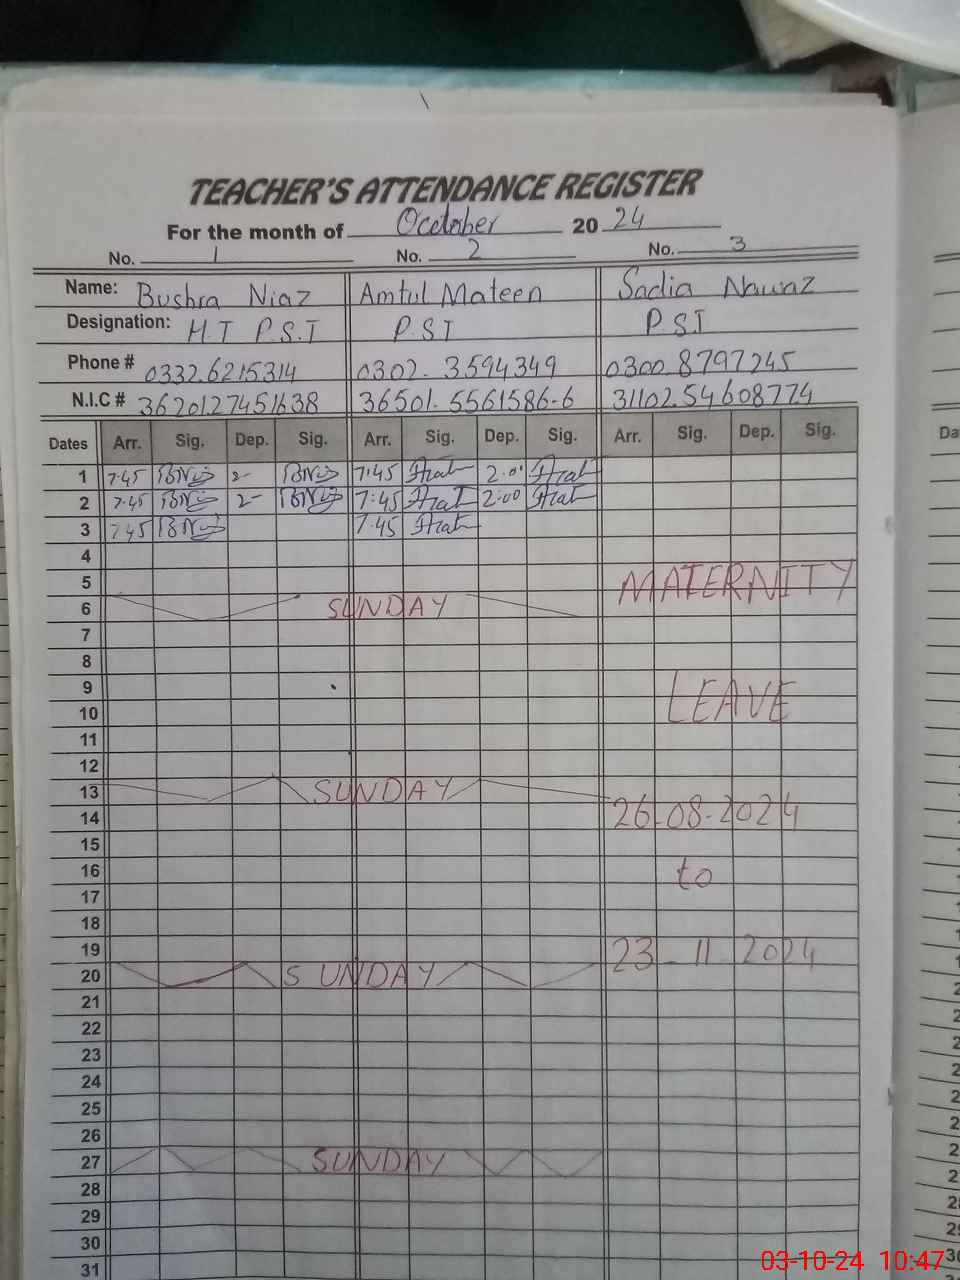 TEACHER'S ATTENDANCE REGISTER
For the month of Occtober 20 24
No. 1 No. 2 No. 3
Name: Bushra Niaz Amtul Mateen Sadia Nawaz
Designation: H T P.S.T P.S.T P.S.T
Phone # 0332.6215314 0302. 3594349 0300.8797245
N.I.C # 3620127451638 36501.5561586-6 31102.54608774
Dates Arr. Sig. Dep. Sig. Arr. Sig. Dep. Sig. Arr. Sig. Dep. Sig.
1 7.45 2- 7.45 2.0
2 7.45 2- 7:45 2.00
3 7.45 7.45
4
5 MATERNITY
6 SUNDAY
7
8
9
10 LEAVE
11
12
13 SUNDAY
14 26-08-2024
15
16 to
17
18
19 23 - 11 2024
20 SUNDAY
21
22
23
24
25
26
27 SUNDAY
28
29
30
31
Da
03-10-24 10:47